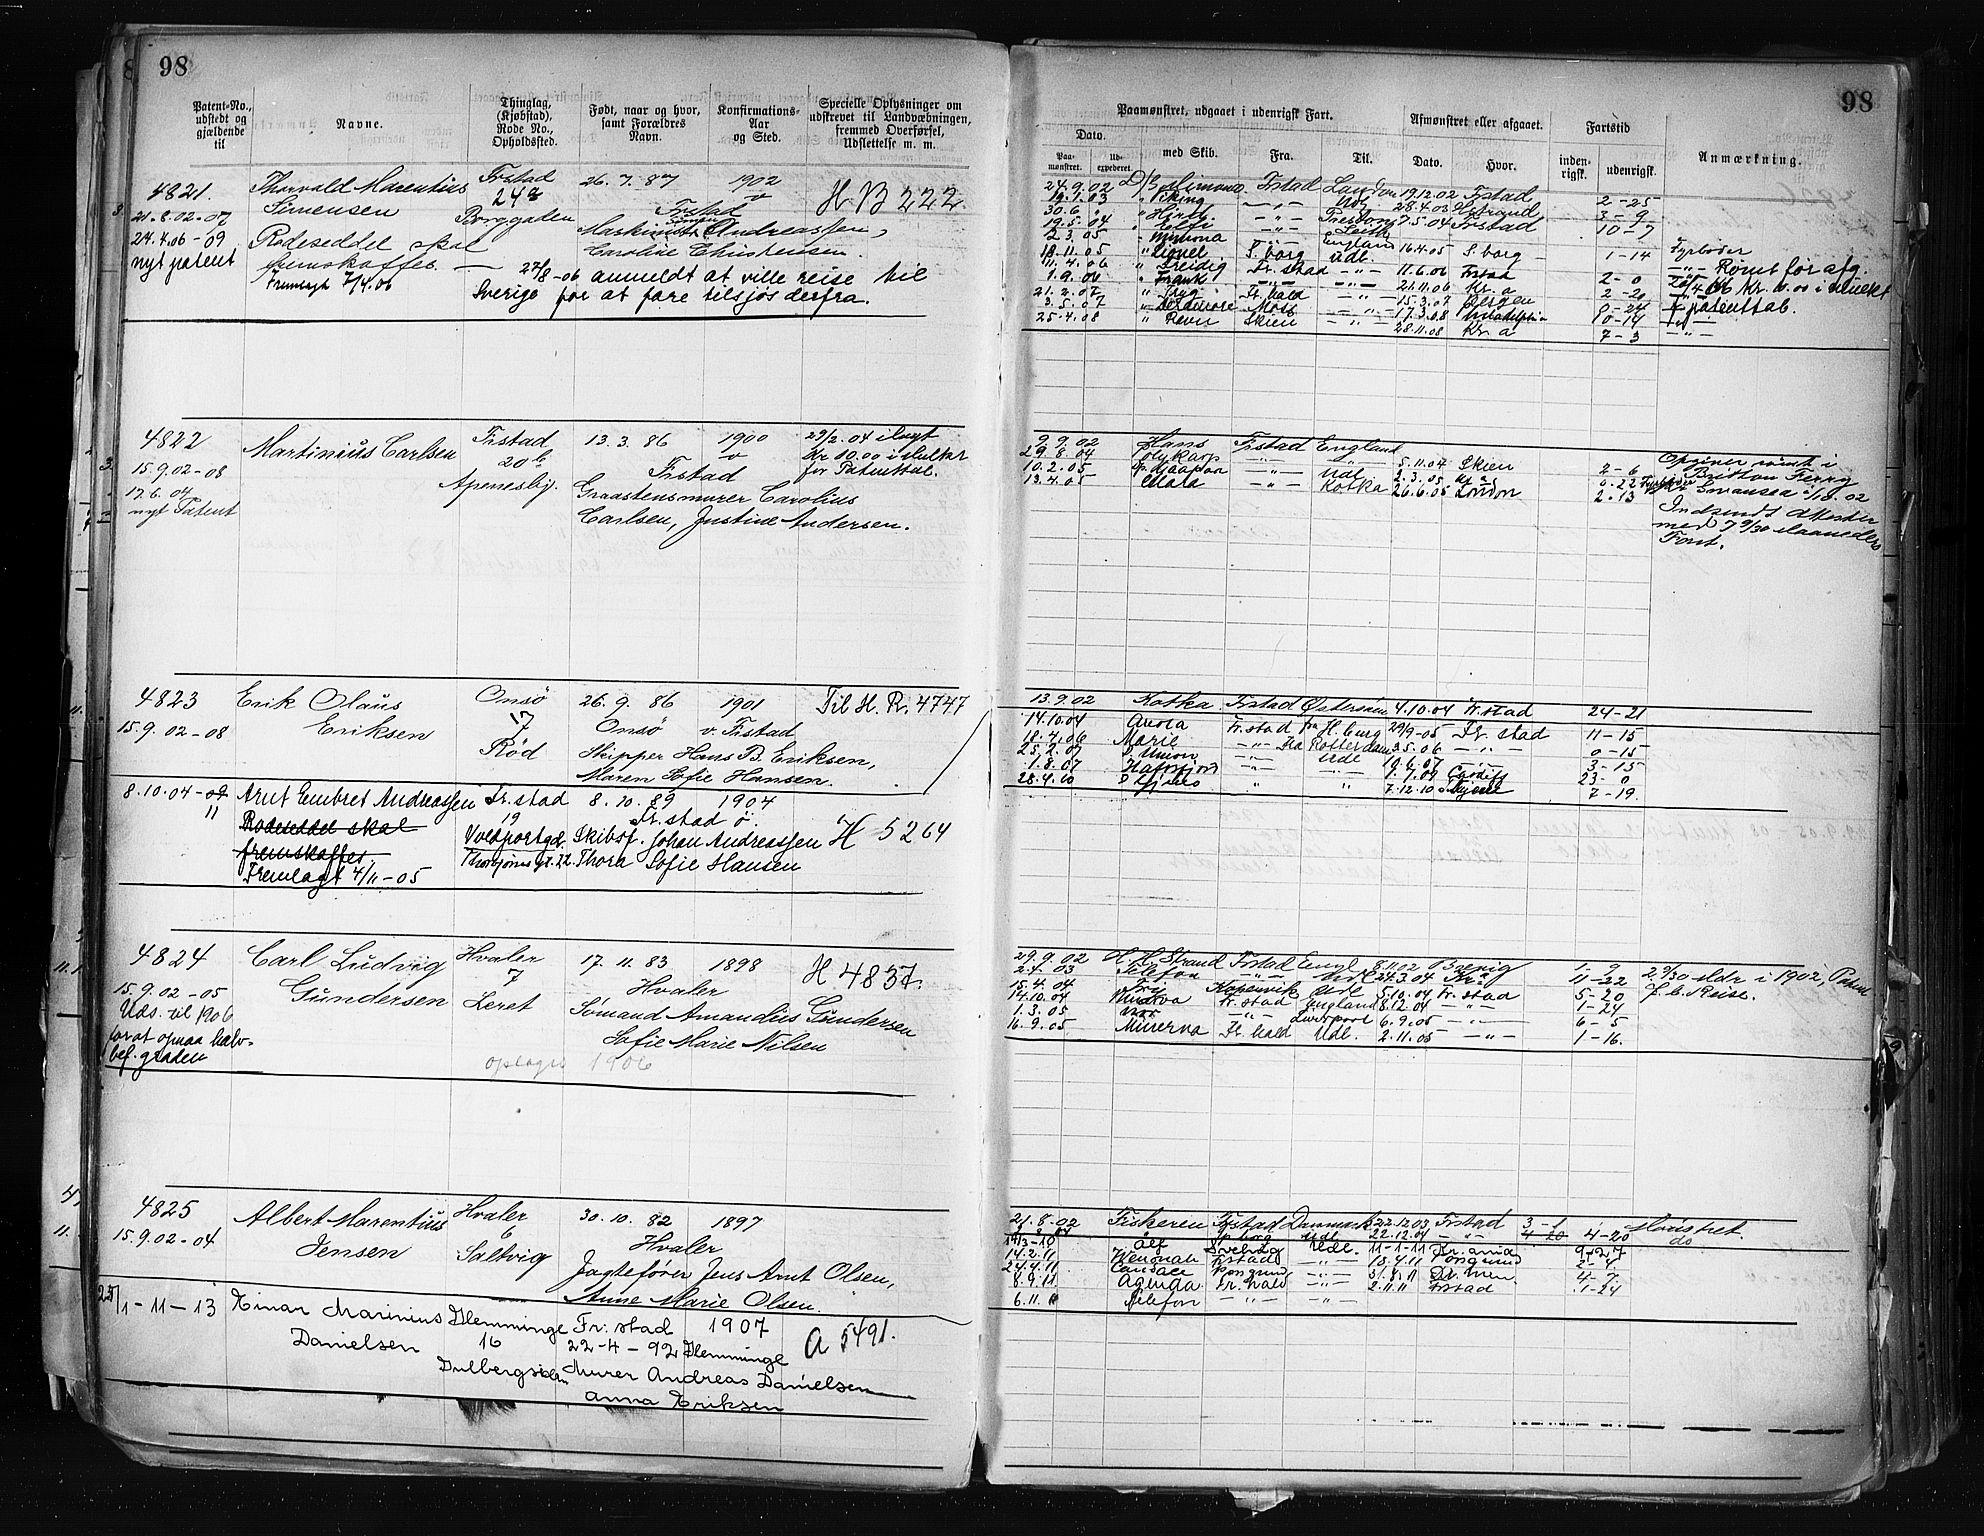 98
Patent-No., udstedt og gjældende til
Navne.
Thinglag, (Kjøbstad), Rode No., Opholdssted.
Født, naar og hvor, samt Forældres Navn.
Konfirmations-Aar og Sted.
Specielle Oplysninger om udskrevet til Landværbningen, fremmed Overførsel, Udslettelse m. m.
4821. Thorvald Marentius Frstad 26. 7. 87 1902 H B 222
21.8.02-07 Simensen 24a Frstad
Borggaden Maskinist Simon Andreassen,
24.4.06-09 Rodeseddel skal Caroline Christensen.
nyt patent fremskaffes. — 27/8-06 anmeldt at ville reise til
Fremlagt 7/4.06 Sverige for at fare tilsjøs derfra.
4822 Martinius Carlsen Frstad 13. 3. 86 1900 29/2.04 ilagt
15.9.02-08 20b Frstad Kr 10.00 i Mulkt
17.6.04 Apenesbg. Graastensmurer Carolius for Patenttab.
nyt Patent Carlsen, Justine Andersen.
4823 Erik Olaus Onsö 26. 9. 86 1901 Til H. R. 4747
15.9.02-08 Eriksen 17 Onsö v. Frstad
Röd Skipper Hans B. Eriksen,
Maren Sofie Hansen.
8.10.04-09 Arnt Embret Andreassen Fr.stad 8. 10. 89 1904
11 Rodeseddel skal 19 Fr. stad ö.
fremskaffes. Voldportgd. Skibsf. Johan Andreassen H 5264
Fremlagt 4/11-05 Thora Sofie Hansen
4824 Carl Ludvig Hvaler 17. 11. 83 1898 H 4837.
15.9.02-05 Gundersen 7 Hvaler
Uds. til 1906 Leret Sömand Amandius Gundersen
for at opnaa halv- Sofie Marie Nilsen
bef. graden optages 1906
4825 Albert Marentius Hvaler 30. 10. 82 1897
15.9.02-04 Jensen 6 Hvaler
Saltvig Jagtefører Jens Arnt Olsen,
Anne Marie Olsen.
25/1-11-13 Einar Marinius Glemminge Fr. stad 1907 A 5491.
Danielsen 16 22-4-92 Glemminge
Murer Andreas Danielsen
Anna Eriksen
98
Paamønstret, udgaaet i udenrigsk Fart.
Afmønstret eller afgaaet.
Fartstid
Anmærkning.
Dato.
Paa-mønstret. Ud-expederet. med Skib. Fra. Til. Dato. Hvor. inden-rigsk. udenrigsk.
24.9.02 Frstad London 19.12.02 Frstad 2-25
19.1.03 " Viking -"- Udl 28.4.03 3-9
30.6 " 10-7
19.5.04 7.5.04 Frstad
2.3.05 " Minona -"- England 16.4.05 S.borg 1-14 Fyrbøder
18.11.05 " Lionel S. borg Udl.
11.4.06 " Freidig Fr. stad -"- 11.6.06 Frstad 2-0
1.9.06 " Frank -"- -"- 21.11.06 Kr. a 2-20
21.2.07 Fr. hald -"- 15.3.07 Bergen patenttab.
3.5.07 Moss -"- 17.3.08 10-14
25.4.08 " Revn Skien -"- 28.11.08 Kr. a 7-3 -"-
9.9.02 Hans Frstad England
29.8.04 Polykarp -"- -"- 5.11.04 Skien 2-6 Opgiver rømt i
10.2.05 -"- Udl 2.3.05 0-22 Britton Ferry
13.4.05 Clara -"- Kotka 26.6.05 London 2-13 Swansea 10.02
Indsendt Attester
med 7 9/30 Maaneders
Fart.
13.9.02 Kotka Frstad Østersøen 4.10.04 Fr. stad 24-21
14.10.04 Avola Fr. stad fra H. burg 29/9-05 Fr. stad 11-15
18.4.06 Marie -"- fra Rotterdam 3.5.06 -"- 0-15
25.2.07 Union -"- Udl 10.6.07 -"- 3-15
1.8.07 Hafrsfjord -"- 1.7.09 Cardiff 23-0
28.4.10 " " 7.12.10 7-19.
29.9.02 H. H. Strand Frstad Engl 8.11.02 Brevig 1-9 2 9/30 Mdr i 1902, Patent
2.4.03 Telefon -"- Udl 24.3.04 Kr.a 11-22 f. b. Reise.
15.4.04 Kopervik Udl 5.10.04 Fr. stad 5-20
14.10.04 Minerva Fr. stad England 8.12.04 -"- 1-24
1.3.05 -"- Liverpool 6.9.05 -"- 6-5
16.9.05 Minerva Fr. hald Udl. 2.11.05 -"- 1-16.
21.8.02 Fiskeren Frstad Danmark 22.12.03 Frstad 3-1 Mønstret
Udl 22.12.04 -"- 4-20 4-20 do
Alf Svelvig Udl. 11-1-11 9-27
14.2.11 Wenonah Frstad -"- 18.4.11 Porsgrund 2-4
24.4.11 Candace Porsgrund -"- 31.8.11 Dr. men 4-7
8.9.11 Agenda Fr. hald -"- 2.11.11 Frstad 1-24
6.11.11 Telefon -"- -"-